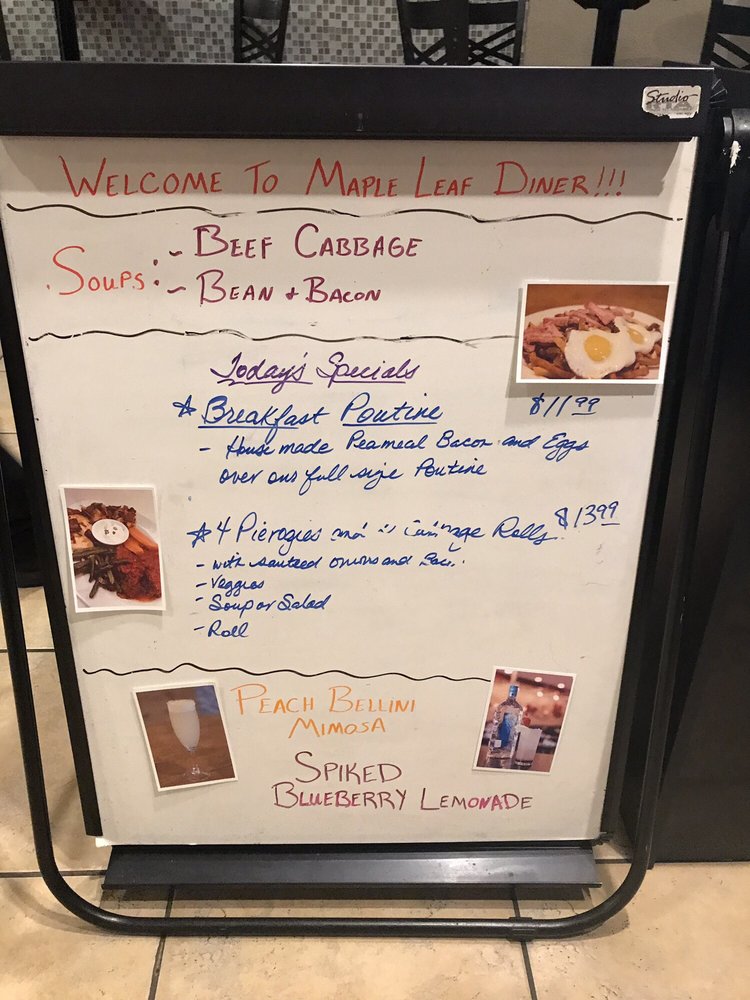 Studio
WELCOME TO MAPLE LEAF DINER!!!
SOUPS:
- BEEF CABBAGE
- BEAN + BACON
Today's Specials
* Breakfast Poutine $11.99
- House made Peameal Bacon and Eggs
over our full size Poutine
* 4 Pierogies and Cabbage Rolls $13.99
- with sauteed onions and
- Veggies
- Soup or Salad
- Roll
PEACH BELLINI
MIMOSA
SPIKED
BLUEBERRY LEMONADE